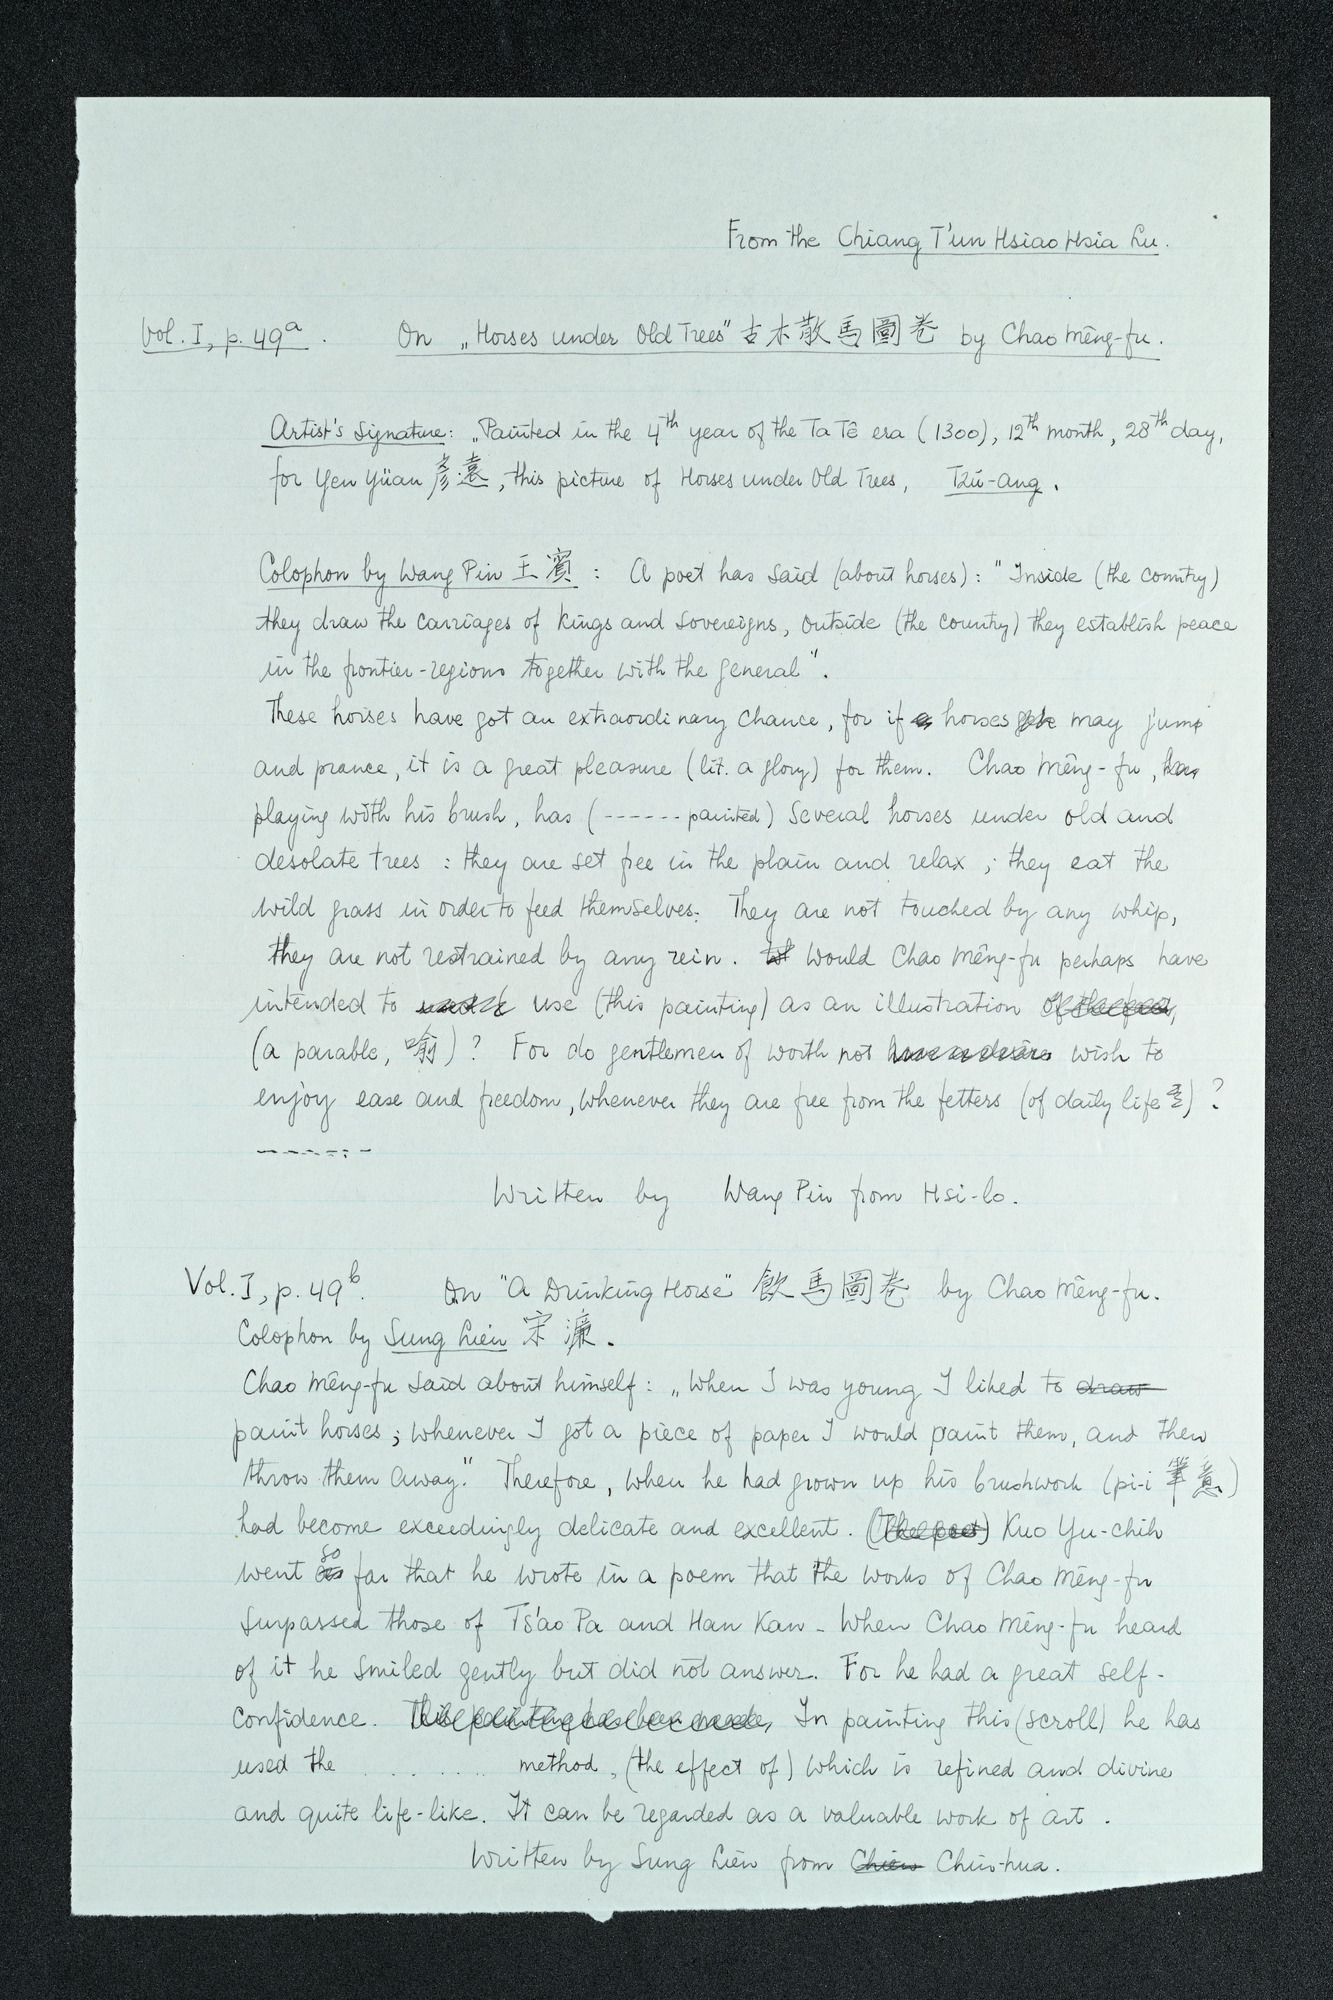 From the Chiang T'un Hsiao Hsia Lu.
Vol. I, p. 49a. On „Horses under Old Trees" 古木散馬圖卷 by Chao Mêng-fu.
Artist's Signature: „Painted in the 4th year of the Ta Tê era (1300), 12th month, 28th day,
for Yen Yüan 彥遠, this picture of Horses under Old Trees, Tzŭ-ang.
Colophon by Wang Pin 王賓: A poet has said (about horses): "Inside (the country)
they draw the carriages of kings and sovereigns, outside (the country) they establish peace
in the frontier-regions together with the general".
These horses have got an extraordinary chance, for if horses may jump
and prance, it is a great pleasure (lit. a glory) for them. Chao Mêng-fu, has
playing with his brush, has (------ painted) several horses under old and
desolate trees: they are set free in the plain and relax; they eat the
wild grass in order to feed themselves. They are not touched by any whip,
they are not restrained by any rein. Would Chao Mêng-fu perhaps have
intended to use (this painting) as an illustration
(a parable, 喻)? For do gentlemen of worth not have a desire wish to
enjoy ease and freedom, whenever they are free from the fetters (of daily life)?
-------
Written by Wang Pin from Hsi-lo.
Vol. I, p. 49b. On "A Drinking Horse" 飲馬圖卷 by Chao Mêng-fu.
Colophon by Sung Lien 宋濂.
Chao Mêng-fu said about himself: „When I was young I liked to draw
paint horses; whenever I got a piece of paper I would paint them, and then
throw them away." Therefore, when he had grown up his brushwork (pi-i 筆意)
had become exceedingly delicate and excellent. (The poet) Kuo Yu-chih
went so far that he wrote in a poem that the works of Chao Mêng-fu
surpassed those of Ts'ao Pa and Han Kan. When Chao Mêng-fu heard
of it he smiled gently but did not answer. For he had a great self-
confidence. This painting has been made, In painting this (scroll) he has
used the ....... method, (the effect of) which is refined and divine
and quite life-like. It can be regarded as a valuable work of art.
Written by Sung Lien from Chien Chin-hua.